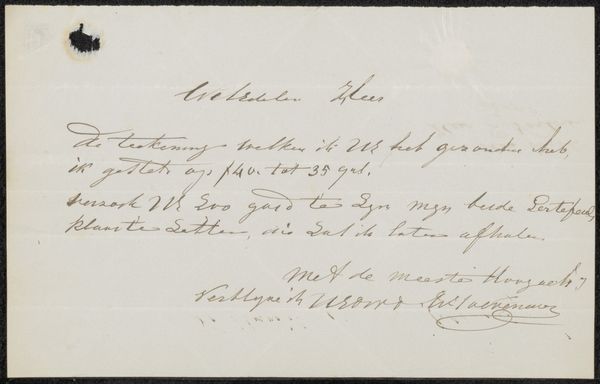 WelEdelen Heer
De teekening welken ik UE heb gezonden heb,
ik gestelt op f40. tot 35 gul.
verzoek UE Zoo goed te Zyn myn beide Portefeuil
klaar te Zetten, die Zal ik laten afhalen
Met de meeste Hoogacht
Verblyve ik UEDWD